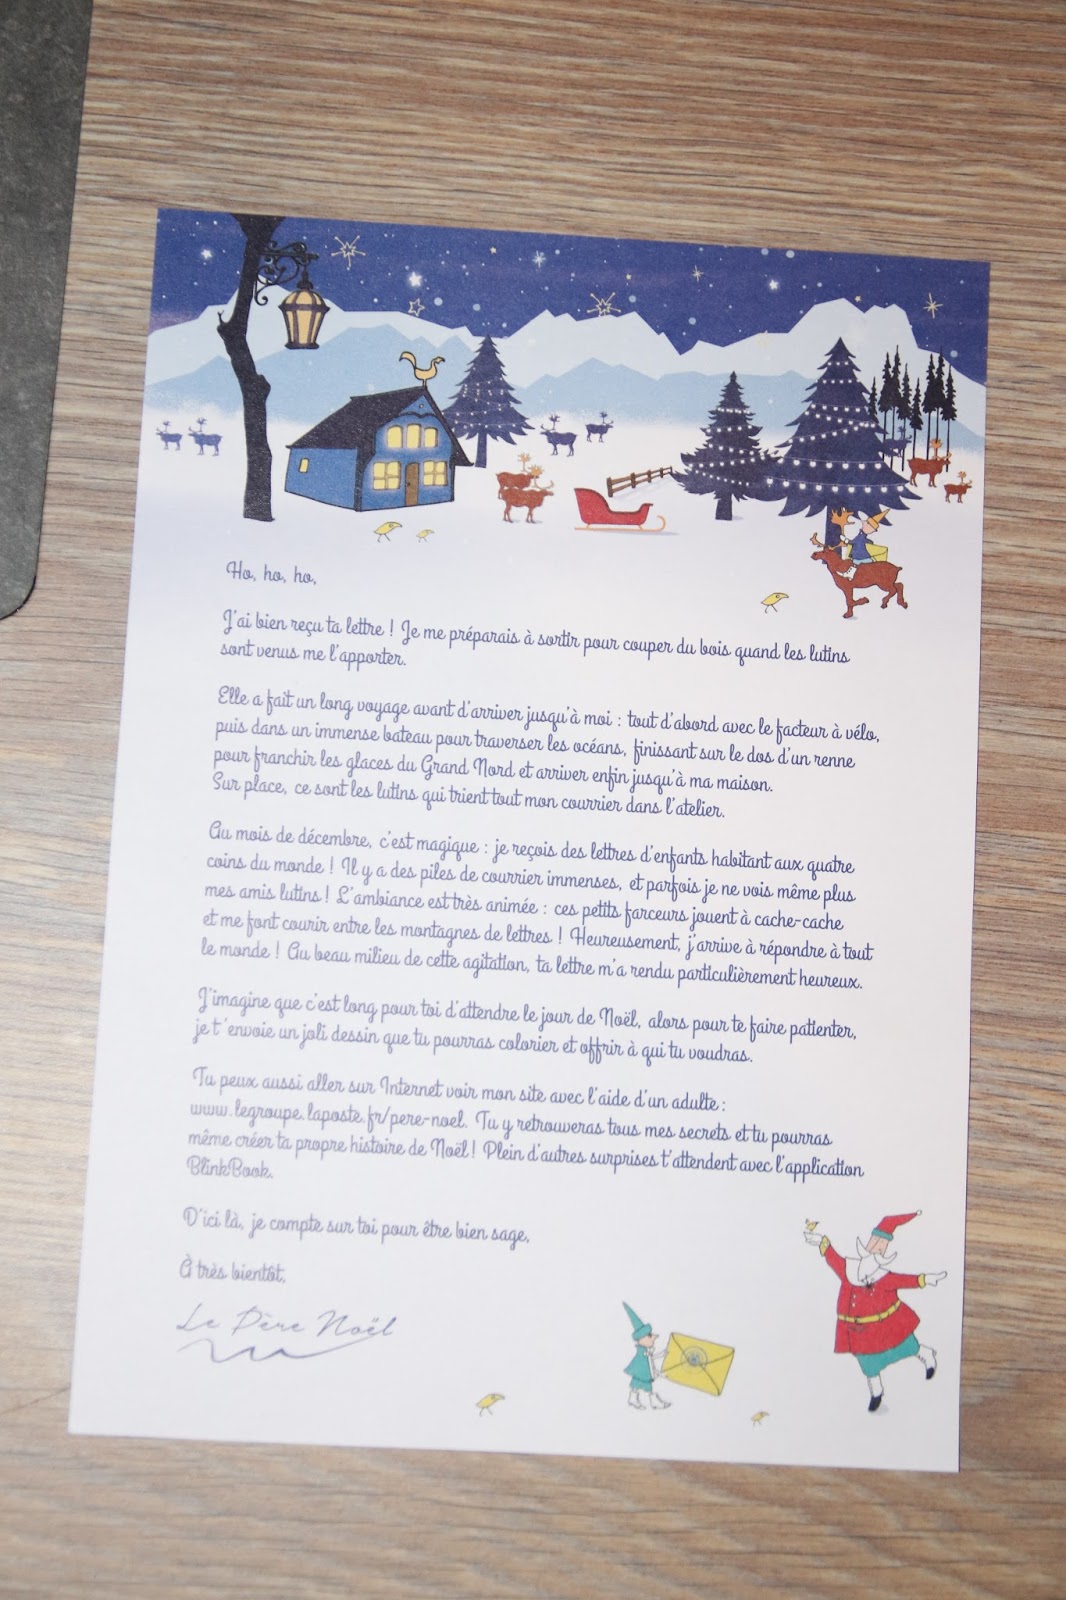 Ho, ho, ho,
J'ai bien reçu ta lettre ! Je me préparais à sortir pour couper du bois quand les lutins
sont venus me l'apporter.
Elle a fait un long voyage avant d'arriver jusqu'à moi : tout d'abord avec le facteur à vélo,
puis dans un immense bateau pour traverser les océans, finissant sur le dos d'un renne
pour franchir les glaces du Grand Nord et arriver enfin jusqu'à ma maison.
Sur place, ce sont les lutins qui trient tout mon courrier dans l'atelier.
Au mois de décembre, c'est magique : je reçois des lettres d'enfants habitant aux quatre
coins du monde ! Il y a des piles de courrier immenses, et parfois je ne vois même plus
mes amis lutins ! L'ambiance est très animée : ces petits farceurs jouent à cache-cache
et me font courir entre les montagnes de lettres ! Heureusement, j'arrive à répondre à tout
le monde ! Au beau milieu de cette agitation, ta lettre m'a rendu particulièrement heureux.
J'imagine que c'est long pour toi d'attendre le jour de Noël, alors pour te faire patienter,
je t'envoie un joli dessin que tu pourras colorier et offrir à qui tu voudras.
Tu peux aussi aller sur Internet voir mon site avec l'aide d'un adulte :
www.legroupe.laposte.fr/pere-noel. Tu y retrouveras tous mes secrets et tu pourras
même créer ta propre histoire de Noël ! Plein d'autres surprises t'attendent avec l'application
BlinkBook.
D'ici là, je compte sur toi pour être bien sage,
À très bientôt,
Le Père Noël